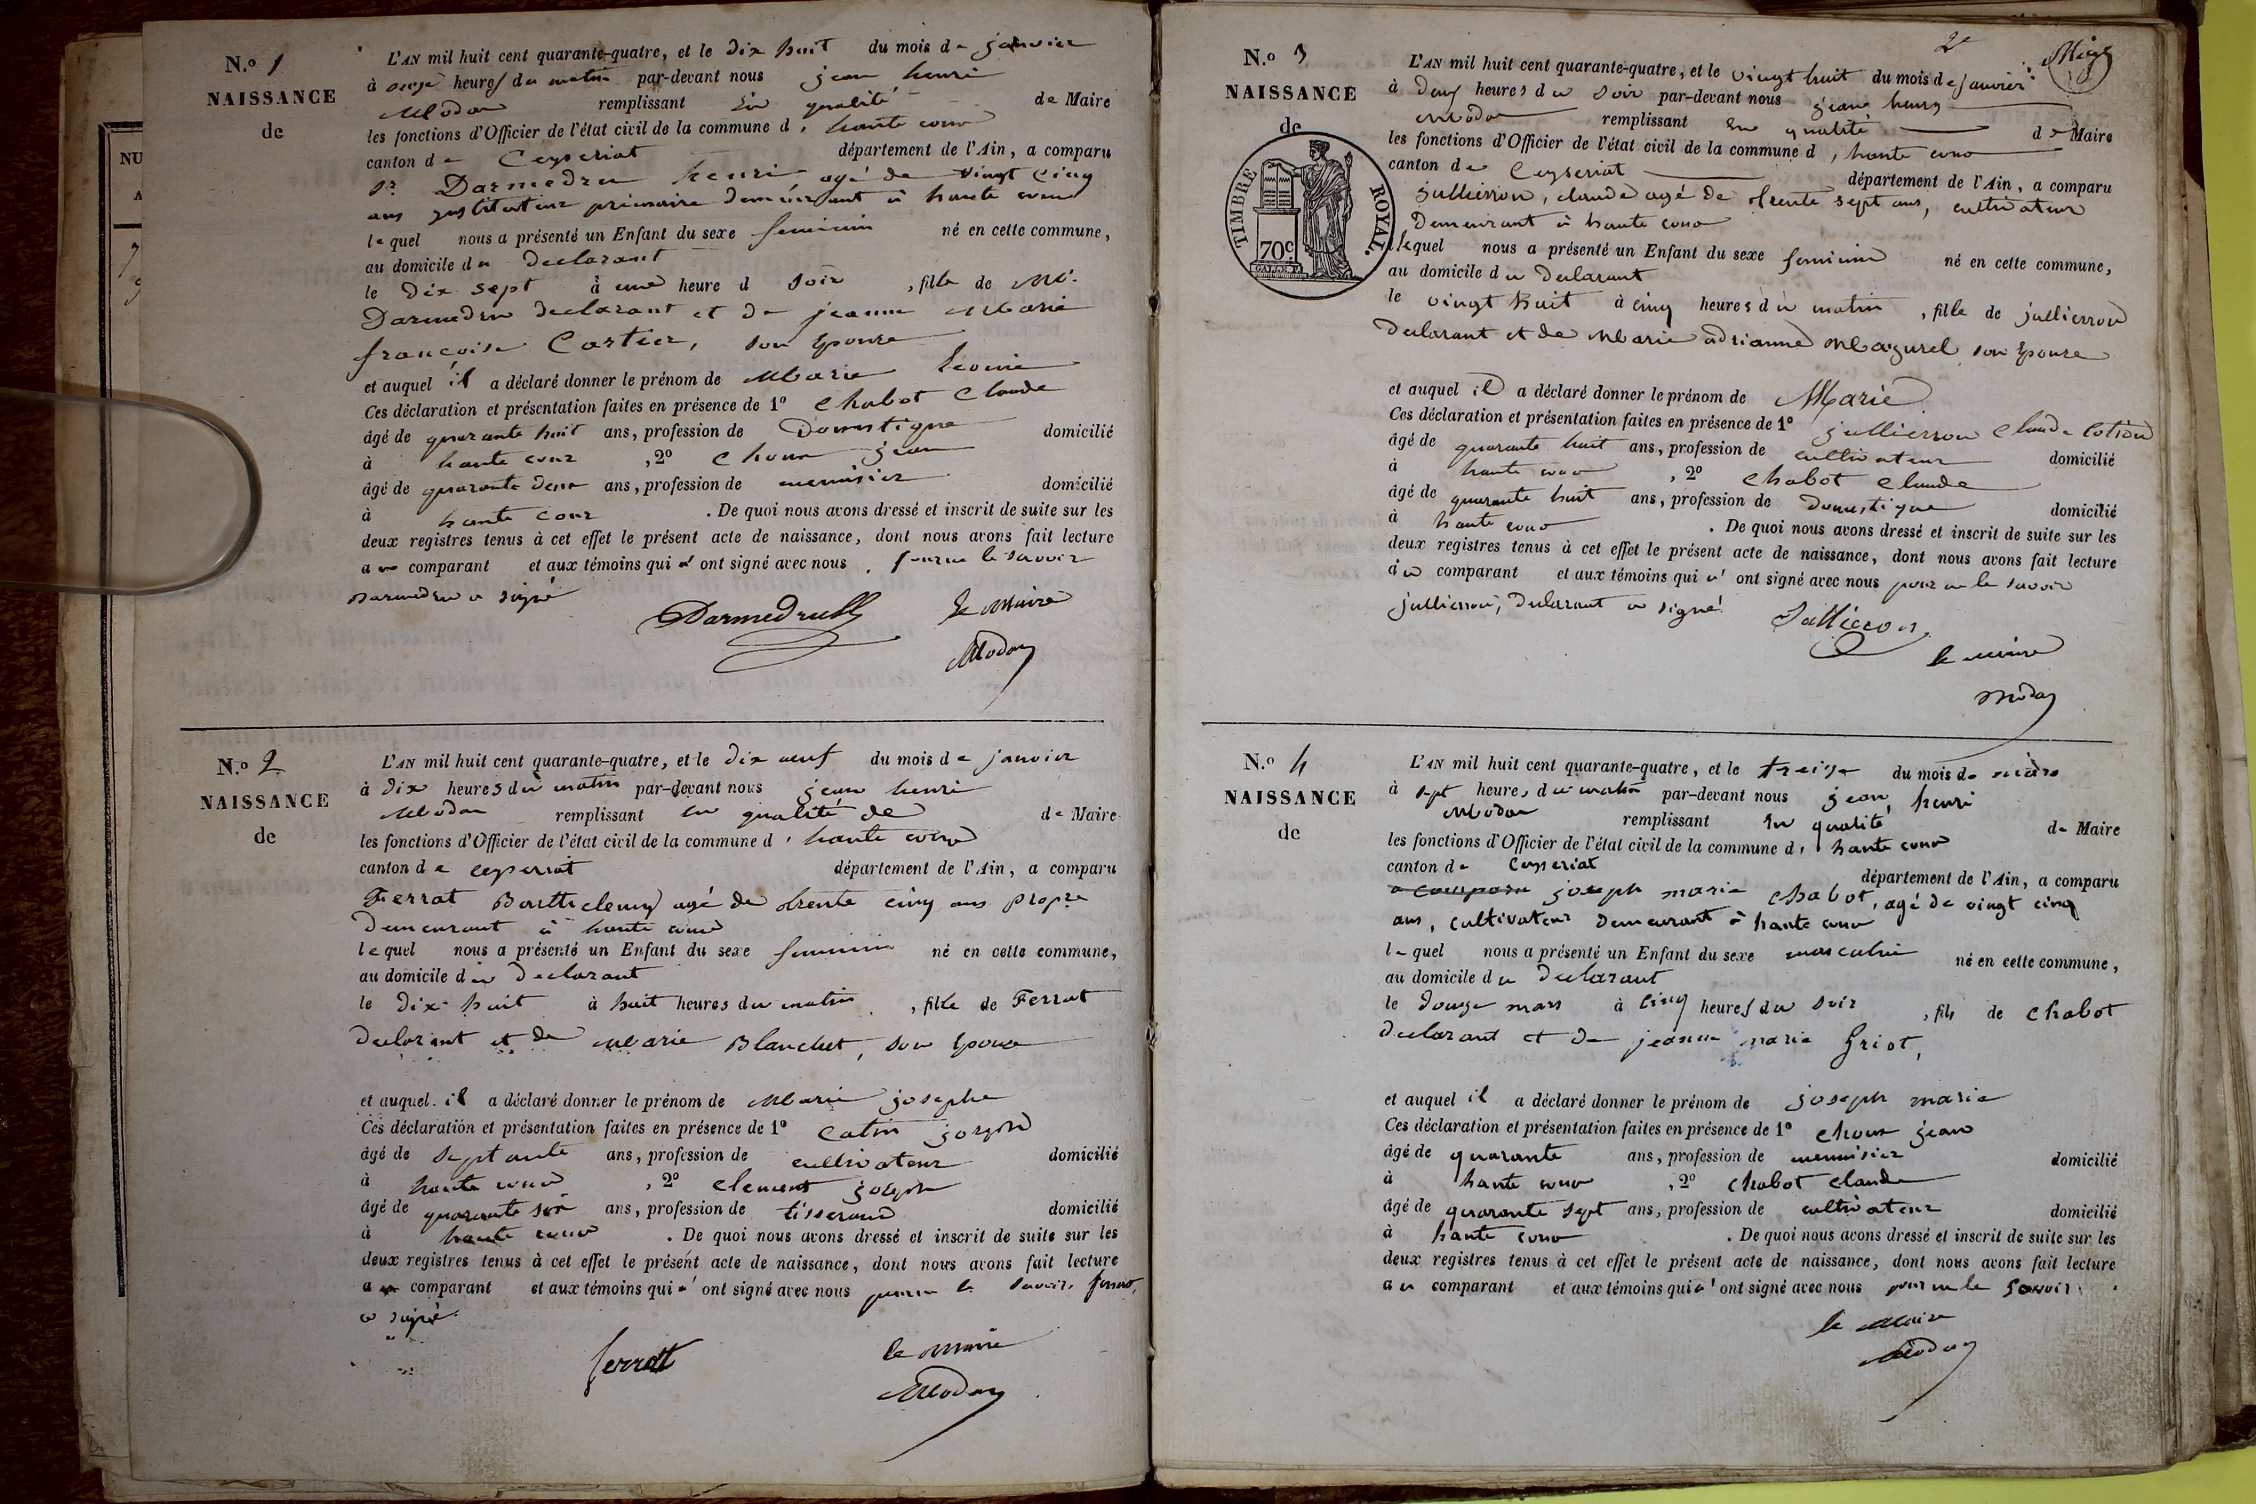 NU
A
N.o 1
NAISSANCE
de
L'AN mil huit cent quarante-quatre, et le dix huit du mois de janvier
à onze heures du matin par-devant nous jean henri
Modas remplissant En qualité de Maire
les fonctions d'Officier de l'état civil de la commune d' haute cour
canton de Ceyseriat département de l'Ain, a comparu
Sr Darmedru henri agé de vingt Cinq
ans instituteur primaire demeurant à haute cour
lequel nous a présenté un Enfant du sexe feminin né en cette commune,
au domicile du declarant
le dix sept à une heure d soir , fille de Mr.
Darmedru declarant et de jeanne Marie
francoise Cartier, son Epouse
et auquel il a déclaré donner le prénom de Marie
Ces déclaration et présentation faites en présence de 1o Chabot Claude
âgé de quarante huit ans, profession de Domestique domicilié
à haute cour , 2o Choux jean
âgé de quarante deux ans, profession de menuisier domicilié
à haute cour . De quoi nous avons dressé et inscrit de suite sur les
deux registres tenus à cet effet le présent acte de naissance, dont nous avons fait lecture
au comparant et aux témoins qui n' ont signé avec nous le savoir
Darmedru a signé
Darmedru le Maire
Modas
N.o 2
NAISSANCE
de
L'AN mil huit cent quarante-quatre, et le dix neuf du mois de janvier
à dix heures du matin par-devant nous jean henri
Modas remplissant en qualité de de Maire
les fonctions d'Officier de l'état civil de la commune d' haute cour
canton de ceyseriat département de l'Ain, a comparu
Ferrat Barthelemy agé de trente cinq ans propre
demeurant à haute cour
lequel nous a présenté un Enfant du sexe feminin né en cette commune,
au domicile du declarant
le dix huit à huit heures du matin , fille de Ferrat
declarant et de Marie Blanchet, son Epouse
et auquel il a déclaré donner le prénom de Marie josephe
Ces déclaration et présentation faites en présence de 1o Catin joseph
âgé de septante ans, profession de cultivateur domicilié
à haute cour , 2o Clement joseph
âgé de quarante six ans, profession de tisserand domicilié
à haute cour . De quoi nous avons dressé et inscrit de suite sur les
deux registres tenus à cet effet le présent acte de naissance, dont nous avons fait lecture
au comparant et aux témoins qui n' ont signé avec nous le savoir, ferrat,
a signé.
ferratt le Maire
Modas
2e
N.o 3
NAISSANCE
de
TIMBRE ROYAL.
70c.
L'AN mil huit cent quarante-quatre, et le vingt huit du mois de janvier
à deux heures du soir par-devant nous jean henry
Modas remplissant En qualité de Maire
les fonctions d'Officier de l'état civil de la commune d' haute cour
canton de Ceyseriat département de l'Ain, a comparu
jullierron, claude agé de trente sept ans, cultivateur
demeurant à haute cour
lequel nous a présenté un Enfant du sexe feminin né en cette commune,
au domicile du declarant
le vingt huit à cinq heures du matin , fille de jullierron
declarant et de Marie adrianne son Epouse
et auquel il a déclaré donner le prénom de Marie
Ces déclaration et présentation faites en présence de 1o jullierron Claude
âgé de quarante huit ans, profession de cultivateur domicilié
à haute cour , 2o Chabot Claude
âgé de quarante huit ans, profession de Domestique domicilié
à haute cour . De quoi nous avons dressé et inscrit de suite sur les
deux registres tenus à cet effet le présent acte de naissance, dont nous avons fait lecture
au comparant et aux témoins qui n' ont signé avec nous pour ne le savoir
jullierron, declarant a signé.
Jullieron
le maire
Modas
N.o 4
NAISSANCE
de
L'AN mil huit cent quarante-quatre, et le treize du mois de mars
à sept heures du matin par-devant nous jean, henri
Modas remplissant En qualité de Maire
les fonctions d'Officier de l'état civil de la commune d' haute cour
canton de Ceyseriat département de l'Ain, a comparu
a comparu joseph marie Chabot, agé de vingt cinq
ans, cultivateur demeurant à haute cour
lequel nous a présenté un Enfant du sexe masculin né en cette commune,
au domicile du declarant
le douze mars à cinq heures du soir , fils de Chabot
declarant et de jeanne marie Griot,
et auquel il a déclaré donner le prénom de joseph marie
Ces déclaration et présentation faites en présence de 1o Choux jean
âgé de quarante ans, profession de menuisier domicilié
à haute cour , 2o Chabot Claude
âgé de quarante sept ans, profession de cultivateur domicilié
à haute cour . De quoi nous avons dressé et inscrit de suite sur les
deux registres tenus à cet effet le présent acte de naissance, dont nous avons fait lecture
au comparant et aux témoins qui n' ont signé avec nous pour ne le savoir
le Maire
Modas